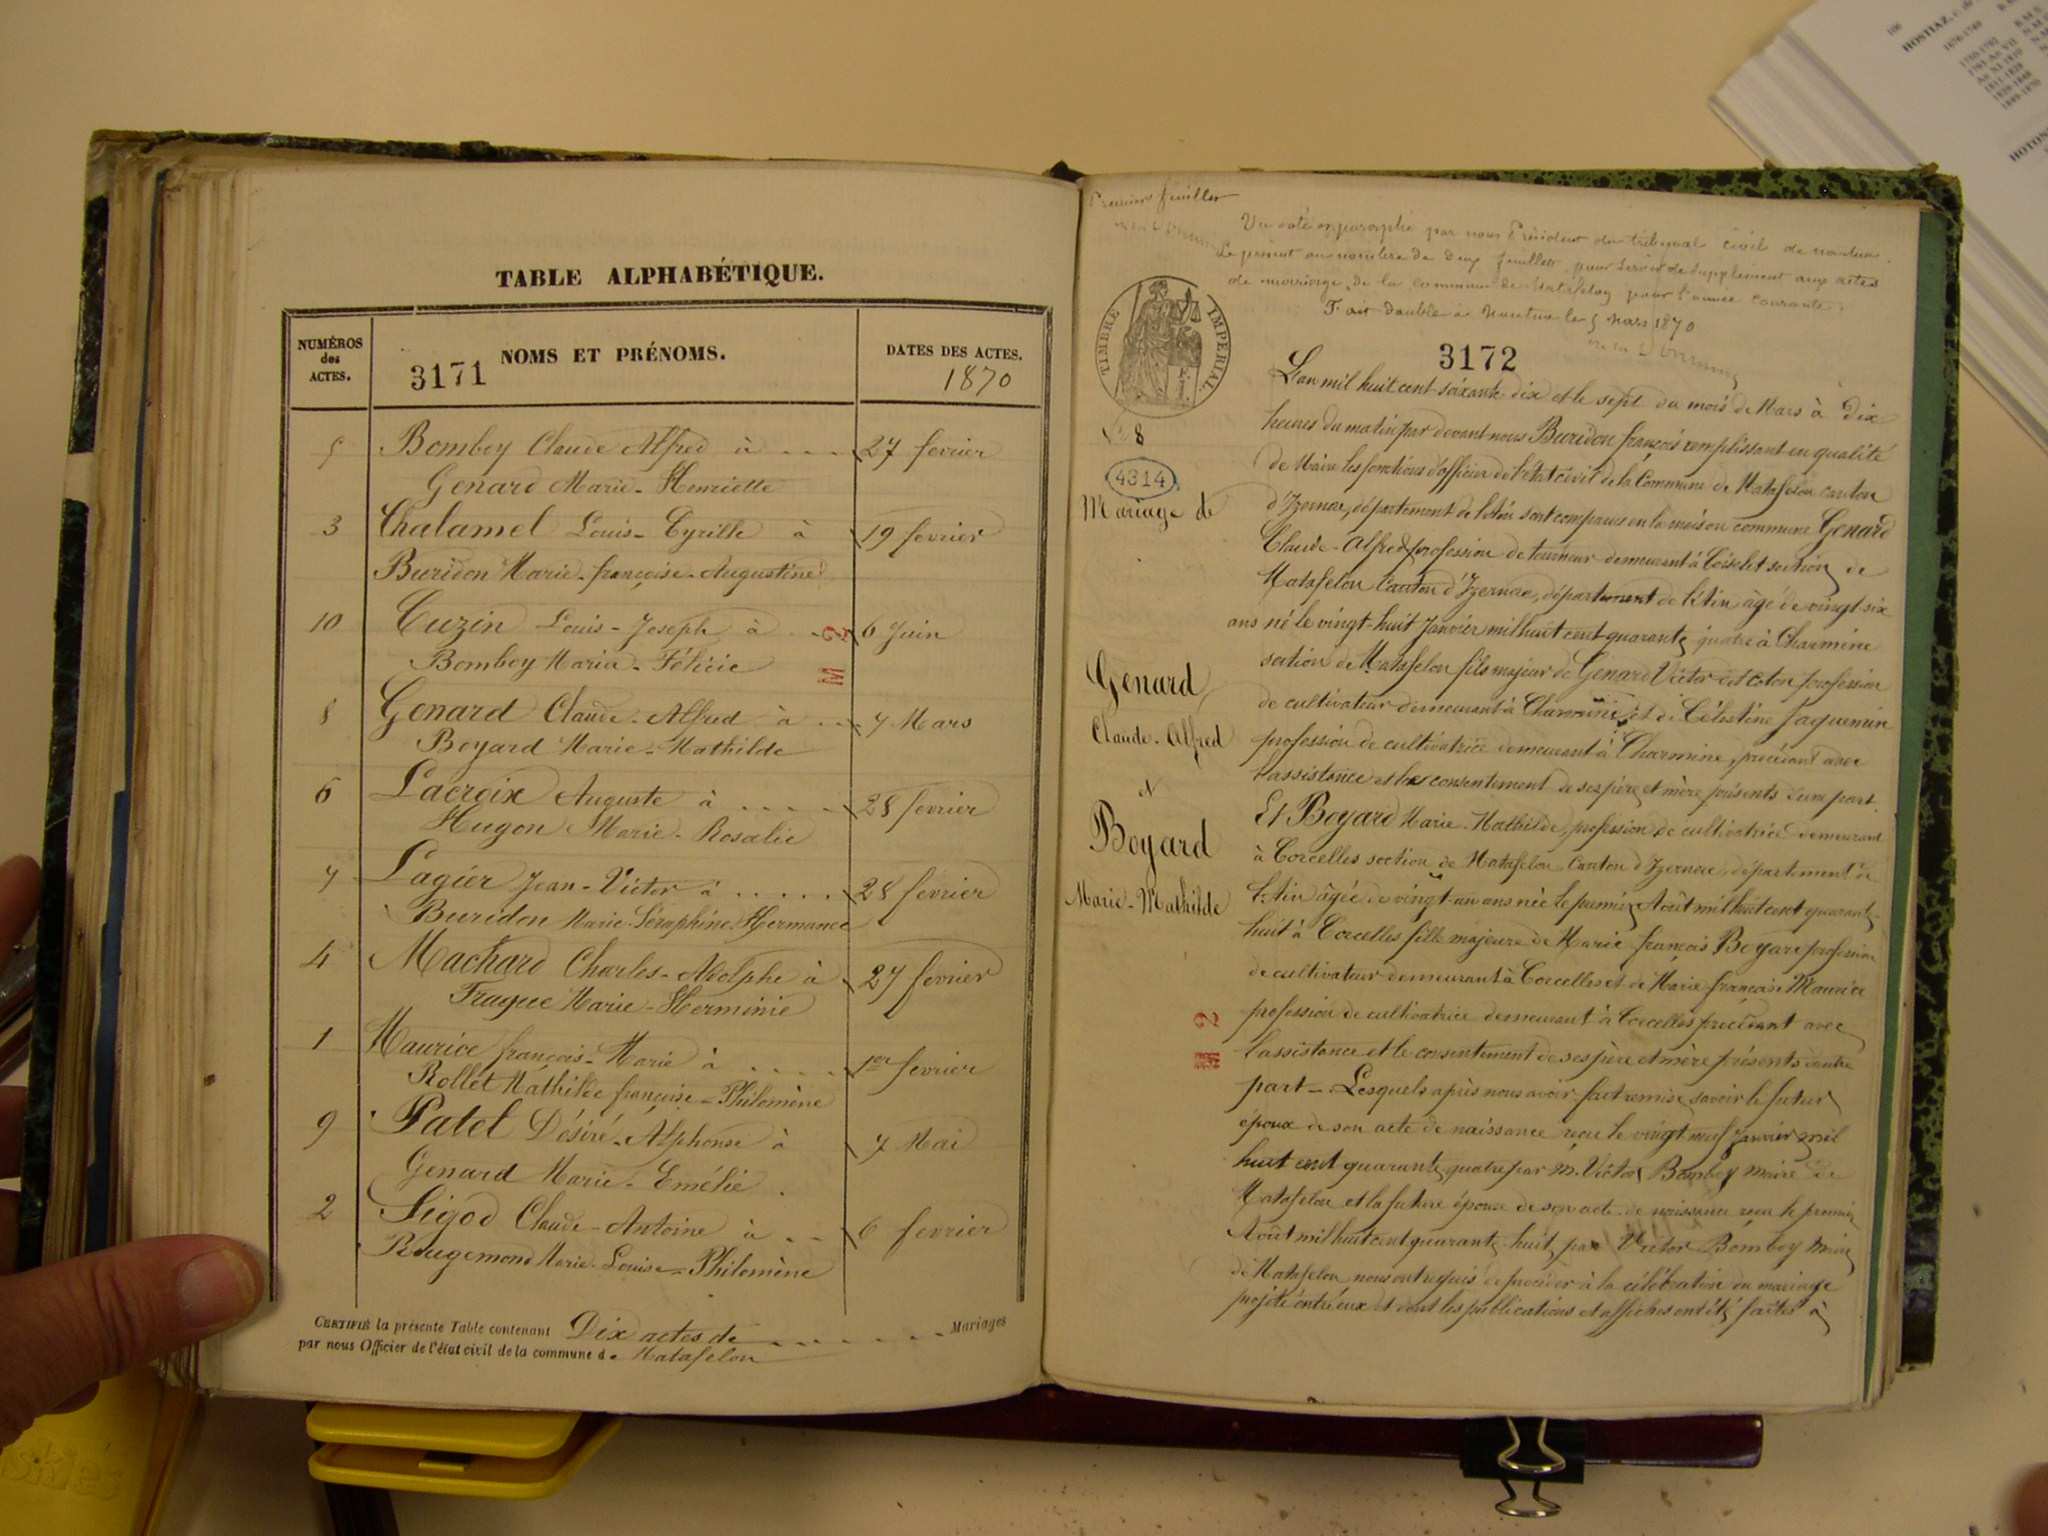 TABLE ALPHABÉTIQUE.
NUMÉROS
des
ACTES.
NOMS ET PRÉNOMS.
3171
DATES DES ACTES.
1870
5 Bombey Claude Alfred à 27 fevrier
Genard Marie-Henriette
3 Chalamel Louis-Cyrille à 19 fevrier
Buridon Marie-françoise-Augustine
10 Cuzin Louis-Joseph à 6 Juin
Bombey Maria-Félicie
M 2
8 Genard Claude-Alfred à 7 Mars
Boyard Marie-Mathilde
6 Lacroix Auguste à 28 fevrier
Hugon Marie-Rosalie
7 Lagier Jean-Victor à 28 fevrier
Buridon Marie-Séraphine-Hermance
4 Machard Charles-Adolphe à 27 fevrier
Frague Marie-Herminie
1 Maurice françois-Marie à 1er fevrier
Rollet Mathilde françoise-Philomène
9 Patel Désiré-Alphonse à 7 Mai
Genard Marie-Emélie
2 Sigod Claude-Antoine à 6 fevrier
Rougemond Marie-Louise-Philomène
CERTIFIÉ la présente Table contenant Dix actes de Mariages
par nous Officier de l'état civil de la commune de Matafelon
Premier feuillet
Vu coté et paraphé par nous Président du tribunal civil de nantua
Le présent au nombre de deux feuillets pour servir de Supplement aux actes
de mariage de la commune de Matafelon pour l'année courante.
Fait double à Nantua le 5 Mars 1870
TIMBRE IMPÉRIAL.
3172
No 8
4314
Mariage de
Genard
Claude-Alfred
&
Boyard
Marie-Mathilde
M 2
L'an mil huit cent soixante dix et le sept du mois de Mars à dix
heures du matin par devant nous Buridon françois remplissant en qualité
de Maire les fonctions d'officier de l'état civil de la Commune de Matafelon canton
d'Izernore, département de l'Ain sont comparus en la maison commune Genard
Claude-Alfred profession de tourneur demeurant à Coiselet section de
Matafelon Canton d'Izernore, département de l'Ain âgé de vingt six
ans né le vingt-huit Janvier mil huit cent quarante quatre à Charmine
section de Matafelon fils majeur de Genard Victor dit coton profession
de cultivateur demeurant à Charmine et de Célestine Jaquemin
profession de cultivatrice demeurant à Charmine, procédant avec
l'assistance et le consentement de ses père et mère présents d'une part.
Et Boyard Marie-Mathilde, profession de cultivatrice demeurant
à Corcelles section de Matafelon Canton d'Izernore, département de
l'Ain âgée de vingt-un ans née le premier Août mil huit cent quarante-
huit à Corcelles fille majeure de Marie françois Boyard profession
de cultivateur demeurant à Corcelles et de Marie françoise Maurice
profession de cultivatrice demeurant à Corcelles procédant avec
l'assistance et le consentement de ses père et mère présents d'autre
part_ Lesquels après nous avoir fait remise, savoir le futur
époux de son acte de naissance reçu le vingt neuf Janvier mil
huit cent quarante quatre par M. Victor Bombey Maire de
Matafelon et la future épouse de son acte de naissance reçu le premier
Août mil huit cent quarante huit, par Victor Bombey Maire
de Matafelon nous ont requis de procéder à la célébration du mariage
projeté entre eux et dont les publications et affiches ont été faites à
106
HOSTIAZ,